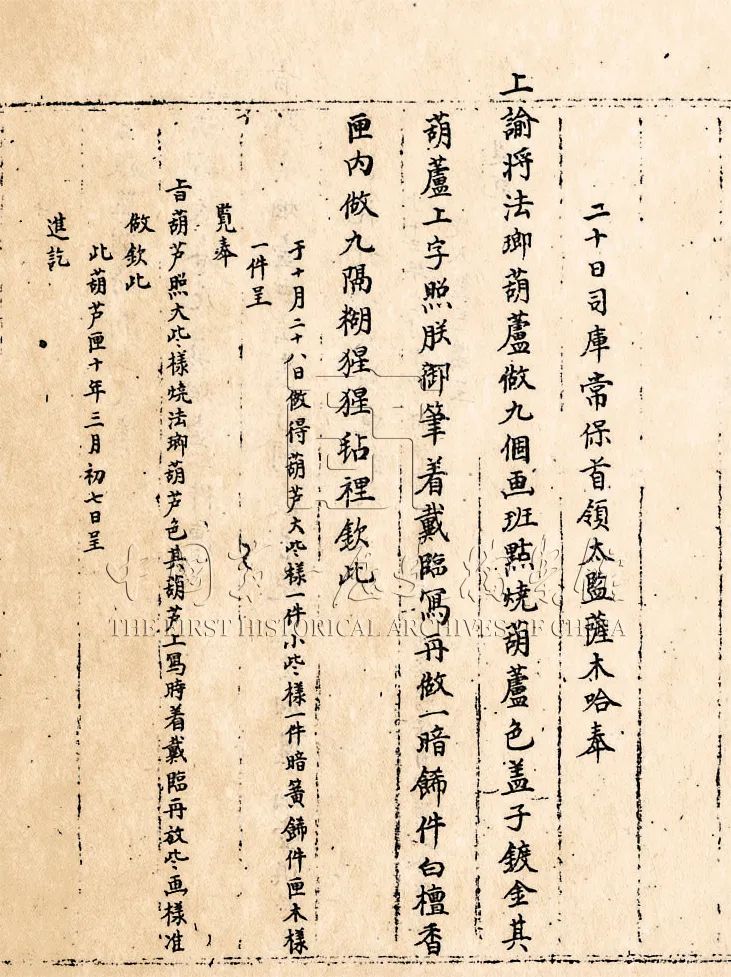 二十日司庫常保首領太監薩木哈奉
上諭将法瑯葫蘆做九個画班點燒葫蘆色盖子鍍金其
葫蘆上字照朕御筆着戴臨寫再做一暗餙件白檀香
匣内做九隔糊猩猩毡裡欽此
于十月二十八日做得葫芦大些樣一件小些樣一件暗簧餙件匣木樣
一件呈
覧奉
旨葫芦照大些樣燒法瑯葫芦色其葫芦上寫時着戴臨再放些画樣准
做欽此
此葫芦匣十年三月初七日呈
進訖
中國第一歷史檔案館
THE FIRST HISTORICAL ARCHIVES OF CHINA